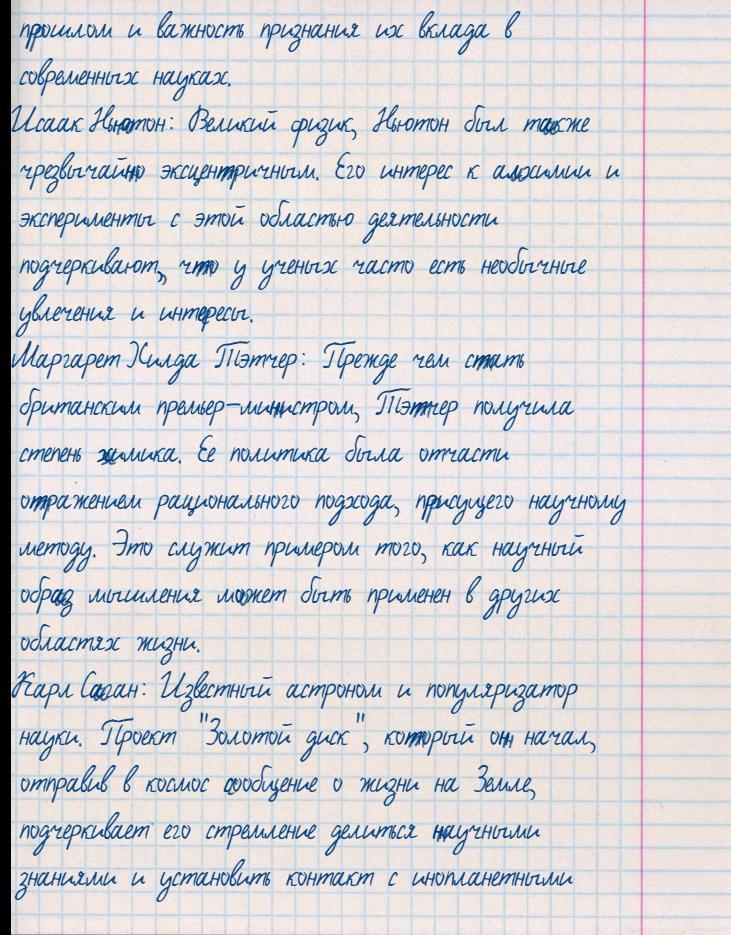 прошлом и важность признания их вклада в
современных науках.
Исаак Ньютон: Великий физик, Ньютон был также
чрезвычайно эксцентричным. Его интерес к алхимии и
эксперименты с этой областью деятельности
подчеркивают, что у ученых часто есть необычные
увлечения и интересы.
Маргарет Хилда Тэтчер: Прежде чем стать
британским премьер-министром, Тэтчер получила
степень химика. Ее политика была отчасти
отражением рационального подхода, присущего научному
методу. Это служит примером того, как научный
образ мышления может быть применен в других
областях жизни.
Карл Саган: Известный астроном и популяризатор
науки. Проект "Золотой диск", который он начал,
отправив в космос сообщение о жизни на Земле,
подчеркивает его стремление делиться научными
знаниями и установить контакт с инопланетными